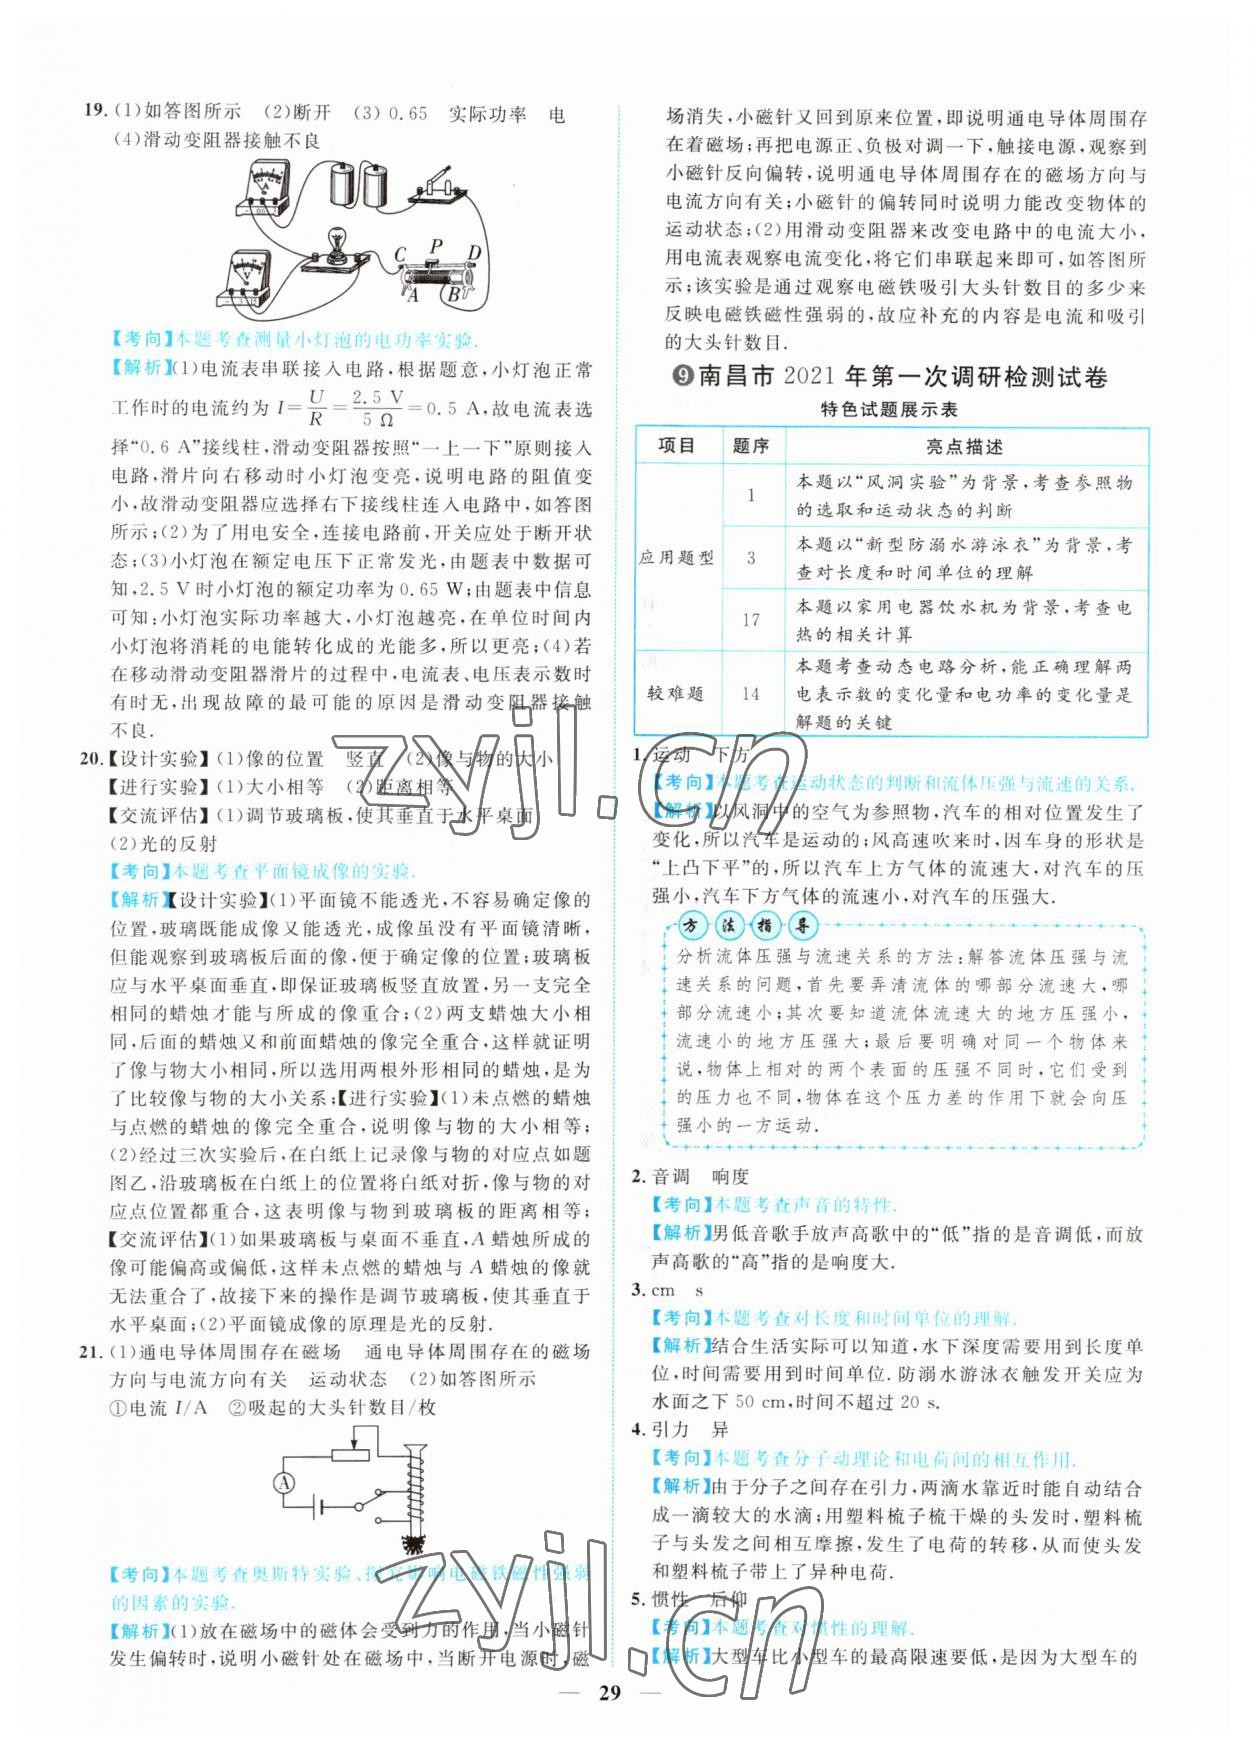 19. (1)如答图所示 (2)断开 (3)0.65 实际功率 电
(4)滑动变阻器接触不良
A
V
C P D
A B
【考向】本题考查测量小灯泡的电功率实验.
【解析】(1)电流表串联接入电路,根据题意,小灯泡正常
工作时的电流约为 I=U/R=2.5 V/5 Ω=0.5 A,故电流表选
择“0.6 A”接线柱,滑动变阻器按照“一上一下”原则接入
电路,滑片向右移动时小灯泡变亮,说明电路的阻值变
小,故滑动变阻器应选择右下接线柱连入电路中,如答图
所示;(2)为了用电安全,连接电路前,开关应处于断开状
态;(3)小灯泡在额定电压下正常发光,由题表中数据可
知,2.5 V时小灯泡的额定功率为0.65 W;题表中信息
可知:小灯泡实际功率越大,小灯泡越亮,在单位时间内
小灯泡将消耗的电能转化成的光能多,所以更亮;(4)若
在移动滑动变阻器滑片的过程中,电流表、电压表示数时
有时无,出现故障的最可能的原因是滑动变阻器接触
不良.
20.【设计实验】(1)像的位置 竖直 (2)像与物的大小
【进行实验】(1)大小相等 (2)距离相等
【交流评估】(1)调节玻璃板,使其垂直于水平桌面
(2)光的反射
【考向】本题考查平面镜成像的实验.
【解析】【设计实验】(1)平面镜不能透光,不容易确定像的
位置,玻璃既能成像又能透光,成像虽没有平面镜清晰,
但能观察到玻璃板后面的像,便于确定像的位置;玻璃板
应与水平桌面垂直,即保证玻璃板竖直放置,另一支完全
相同的蜡烛才能与所成的像重合;(2)两支蜡烛大小相
同,后面的蜡烛又和前面蜡烛的像完全重合,这样就证明
了像与物大小相同,所以选用两根外形相同的蜡烛,是为
了比较像与物的大小关系;【进行实验】(1)未点燃的蜡烛
与点燃的蜡烛的像完全重合,说明像与物的大小相等;
(2)经过三次实验后,在白纸上记录像与物的对应点如题
图乙,沿玻璃板在白纸上的位置将白纸对折,像与物的对
应点位置都重合,这表明像与物到玻璃板的距离相等;
【交流评估】(1)如果玻璃板与桌面不垂直,A蜡烛所成的
像可能偏高或偏低,这样未点燃的蜡烛与A蜡烛的像就
无法重合了,故接下来的操作是调节玻璃板,使其垂直于
水平桌面;(2)平面镜成像的原理是光的反射.
21. (1)通电导体周围存在磁场 通电导体周围存在的磁场
方向与电流方向有关 运动状态 (2)如答图所示
①电流 I/A ②吸起的大头针数目/枚
A
【考向】本题考查奥斯特实验、探究影响电磁铁磁性强弱
的因素的实验.
【解析】(1)放在磁场中的磁体会受到力的作用,当小磁针
发生偏转时,说明小磁针处在磁场中,当断开电源时,磁
场消失,小磁针又回到原来位置,即说明通电导体周围存
在着磁场;再把电源正、负极对调一下,触接电源,观察到
小磁针反向偏转,说明通电导体周围存在的磁场方向与
电流方向有关;小磁针的偏转同时说明力能改变物体的
运动状态;(2)用滑动变阻器来改变电路中的电流大小,
用电流表观察电流变化,将它们串联起来即可,如答图所
示;该实验是通过观察电磁铁吸引大头针数目的多少来
反映电磁铁磁性强弱的,故应补充的内容是电流和吸引
的大头针数目.
❾南昌市2021年第一次调研检测试卷
特色试题展示表
项目 题序 亮点描述
应用题型 1 本题以“风洞实验”为背景,考查参照物
的选取和运动状态的判断
3 本题以“新型防溺水游泳衣”为背景,考
查对长度和时间单位的理解
17 本题以家用电器饮水机为背景,考查电
热的相关计算
较难题 14 本题考查动态电路分析,能正确理解两
电表示数的变化量和电功率的变化量是
解题的关键
1. 运动 下方
【考向】本题考查运动状态的判断和流体压强与流速的关系.
【解析】以风洞中的空气为参照物,汽车的相对位置发生了
变化,所以汽车是运动的;风高速吹来时,因车身的形状是
“上凸下平”的,所以汽车上方气体的流速大,对汽车的压
强小,汽车下方气体的流速小,对汽车的压强大.
方法指导
分析流体压强与流速关系的方法:解答流体压强与流
速关系的问题,首先要弄清流体的哪部分流速大,哪
部分流速小;其次要知道流体流速大的地方压强小,
流速小的地方压强大;最后要明确对同一个物体来
说,物体上相对的两个表面的压强不同时,它们受到
的压力也不同,物体在这个压力差的作用下就会向压
强小的一方运动.
2. 音调 响度
【考向】本题考查声音的特性.
【解析】男低音歌手放声高歌中的“低”指的是音调低,而放
声高歌的“高”指的是响度大.
3. cm s
【考向】本题考查对长度和时间单位的理解.
【解析】结合生活实际可以知道,水下深度需要用到长度单
位,时间需要用到时间单位.防溺水游泳衣触发开关应为
水面之下50 cm,时间不超过20 s.
4. 引力 异
【考向】本题考查分子动理论和电荷间的相互作用.
【解析】由于分子之间存在引力,两滴水靠近时能自动结合
成一滴较大的水滴;用塑料梳子梳干燥的头发时,塑料梳
子与头发之间相互摩擦,发生了电荷的转移,从而使头发
和塑料梳子带上了异种电荷.
5. 惯性 后仰
【考向】本题考查对惯性的理解.
【解析】大型车比小型车的最高限速要低,是因为大型车的
29
zyjl.cn
zyjl.cn